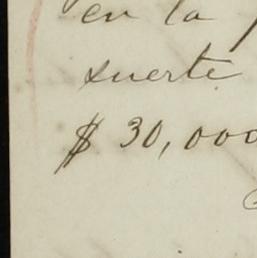 en la
suerte
$ 30,000